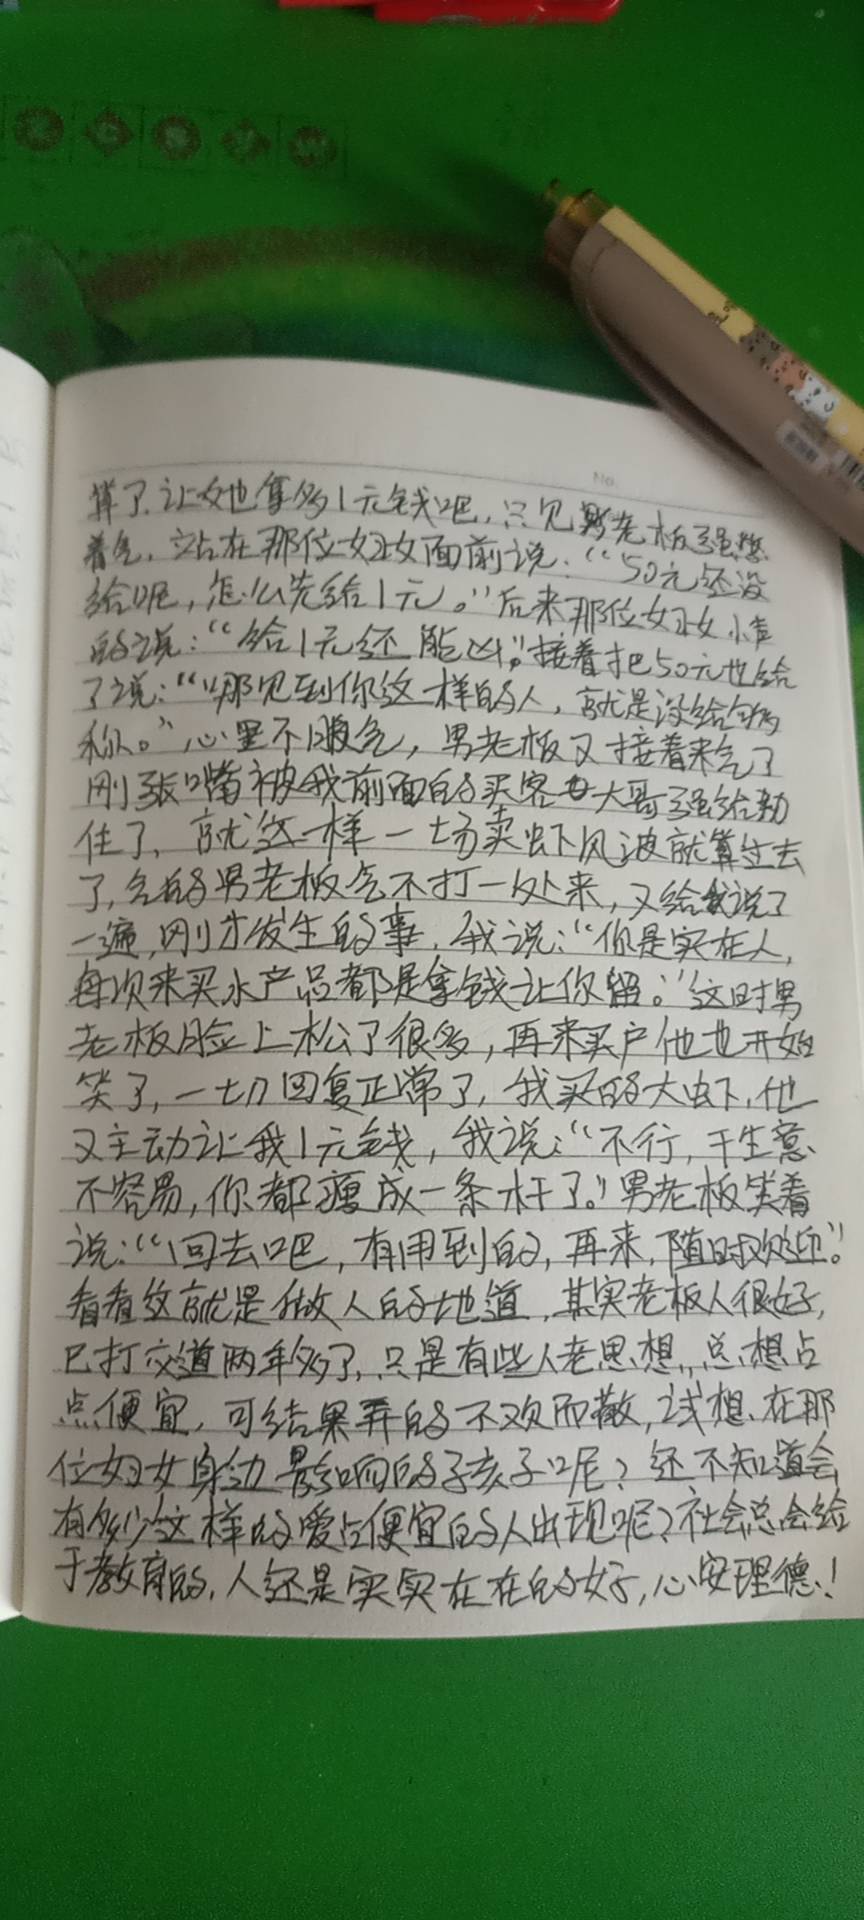 No.
算了,让她拿多1元钱吧,只见男老板强憋
着气,站在那位妇女面前说:“50元还没
给呢,怎么先给1元。”后来那位妇女小声
的说:“给1元还能凶”,接着把50元也给
了说:“哪见到你这一样的人,就是没给够
称。”心里不服气,男老板又接着来气了
刚张嘴被我前面的买客大哥强给劝
住了,就这样一场卖虾风波就算过去
了,气的男老板气不打一处来,又给我说了
一遍,刚才发生的事,我说:“你是实在人,
每次来买水产品都是拿钱让你留。”这时男
老板脸上松了很多,再来买户他也开始
笑了,一切回复正常了,我买的大虾,他
又主动让我1元钱,我说:“不行,干生意
不容易,你都瘦成一条杆了。”男老板笑着
说:“回去吧,有用到的,再来,随时欢迎。”
看看这就是做人的地道,其实老板人很好,
已打交道两年多了,只是有些人老思想,总想占
点便宜,可结果弄的不欢而散,试想,在那
位妇女身边影响的孩子呢?还不知道会
有多少这样的爱占便宜的人出现呢?社会总会给
于教育的,人还是实实在在的好,心安理德!